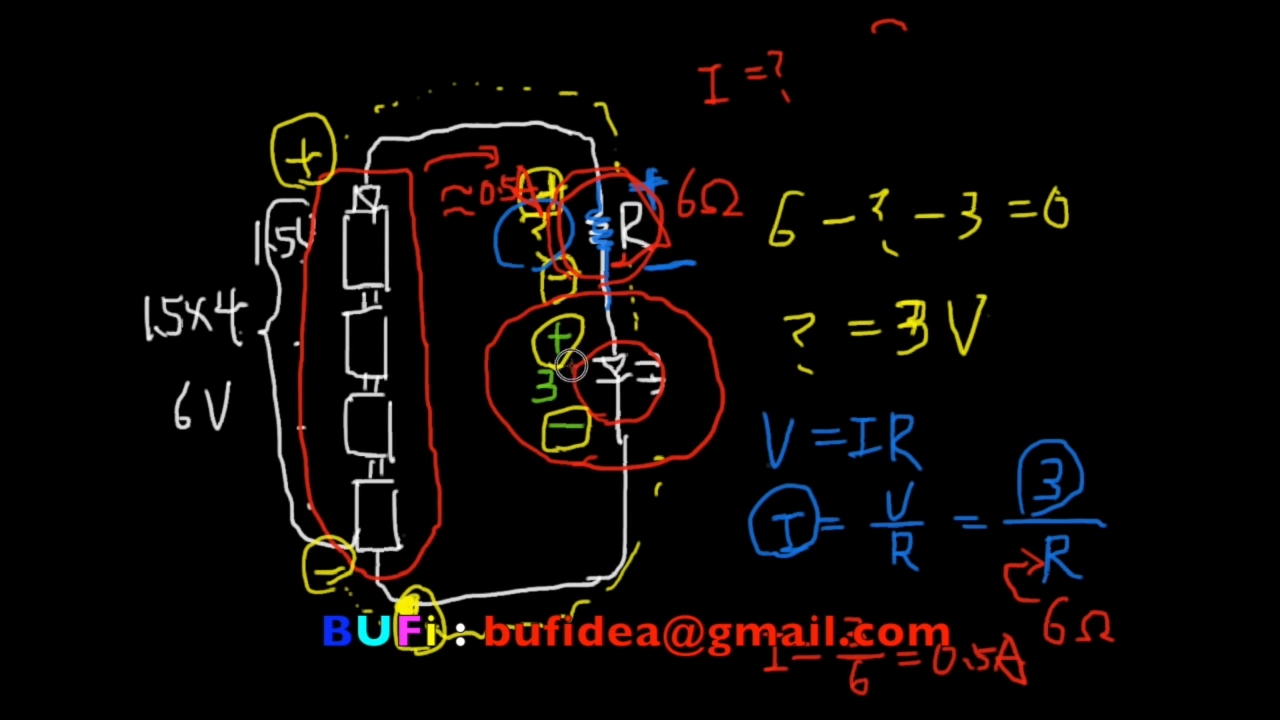 I = ?
+
≈ 0.5A
+
?
-
+
R
-
6Ω
1.5V
1.5x4
6V
+
3
-
-
6 - ? - 3 = 0
? = 3V
V = IR
I = V/R = 3/R
6Ω
I = 3/6 = 0.5A
BUFi : bufidea@gmail.com